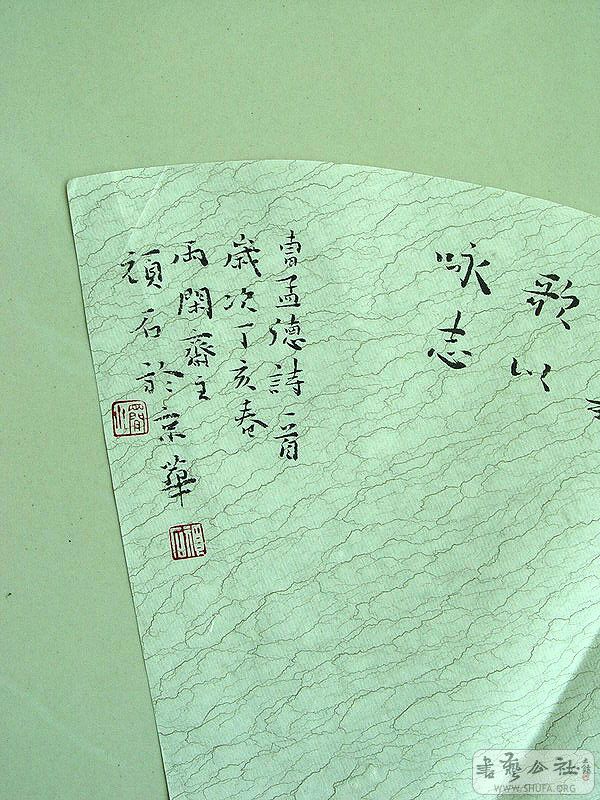 歌以
咏志
曹孟德詩一首
歲次丁亥春
雨閑齋主
頑石於京華
書藝公社
WWW.SHUFA.ORG